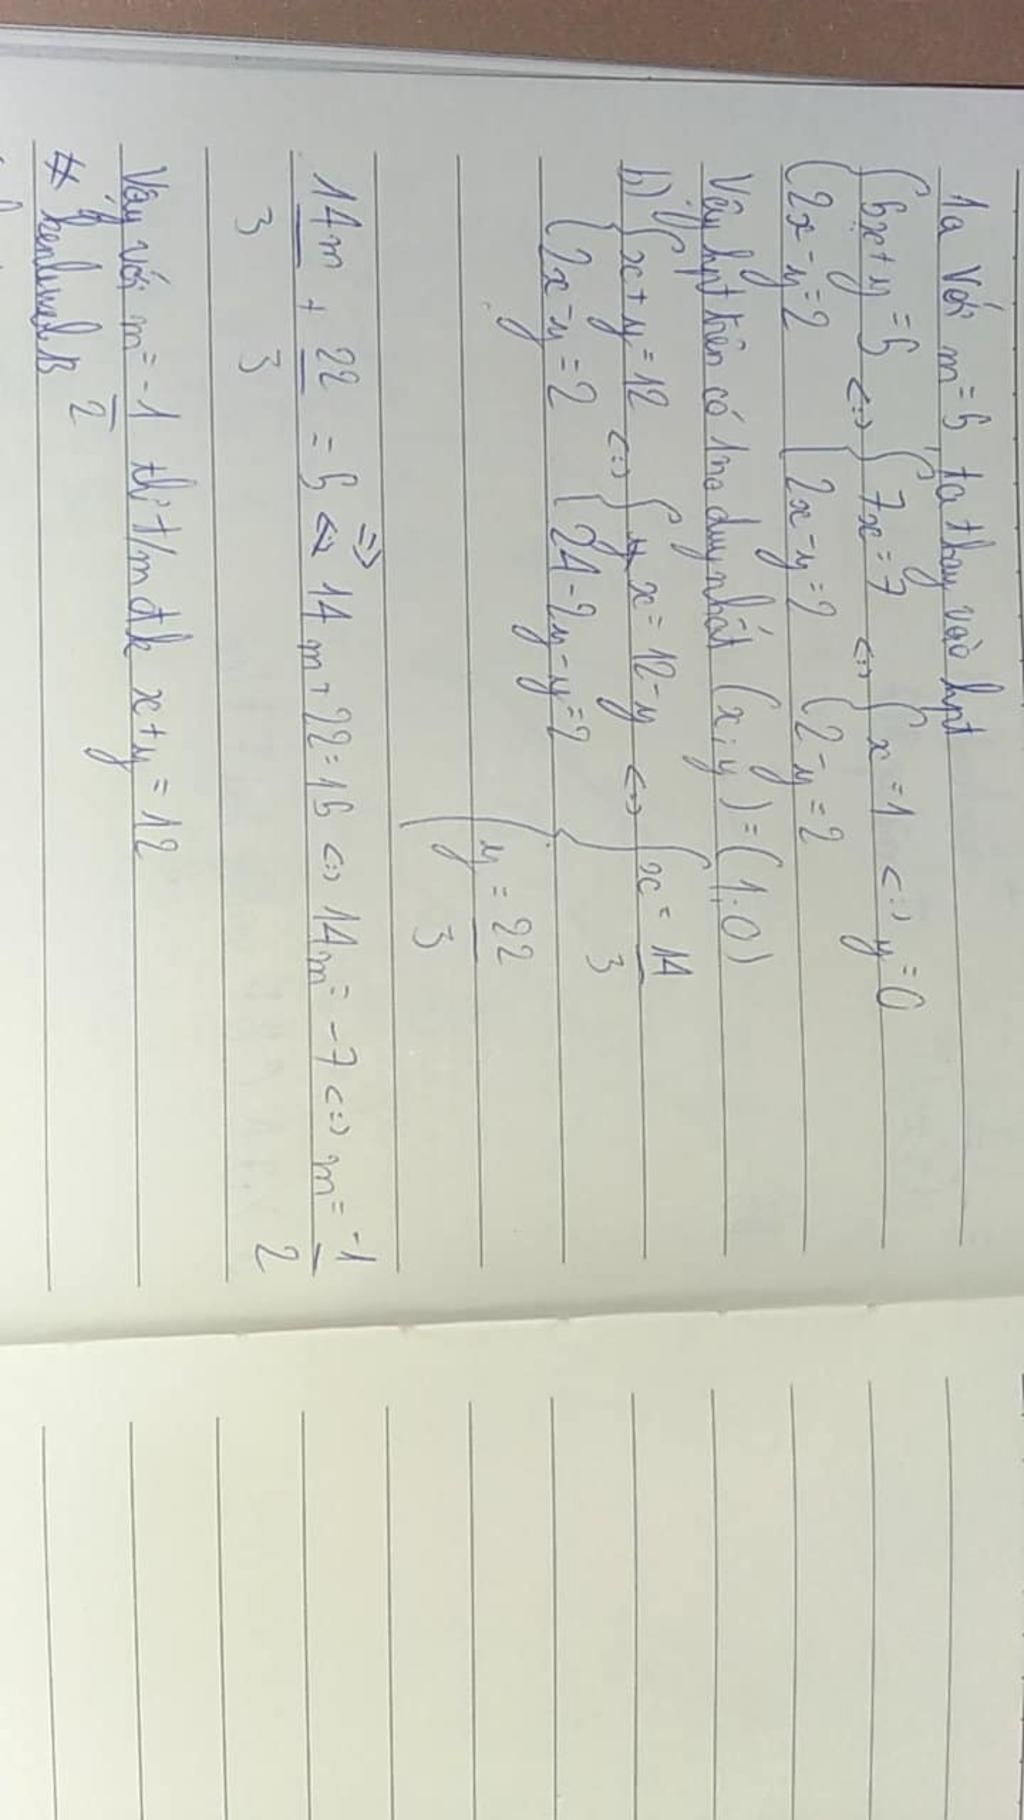 1a Với m = 5, ta thay vào hpt
{ 5x + y = 5 <=> { 7x = 7 <=> { x = 1 <=> y = 0
{ 2x - y = 2 { 2x - y = 2 { 2 - y = 2
Vậy hpt trên có 1 no duy nhất (x; y) = (1; 0)
b) { x + y = 12 <=> { x = 12 - y <=> { x = 14/3
{ 2x - y = 2 { 24 - 2y - y = 2 { y = 22/3
=> 14m/3 + 22/3 = 5 <=> 14m + 22 = 15 <=> 14m = -7 <=> m = -1/2
Vậy với m = -1/2 thì t/m đk x + y = 12